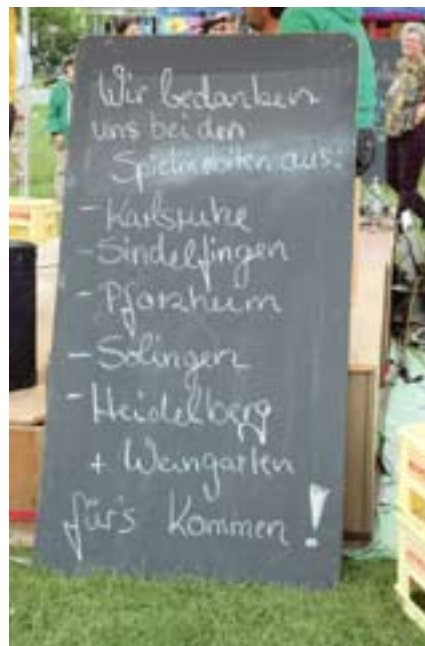 Wir bedanken
uns bei den
Spielmobilen aus:
- Karlsruhe
- Sindelfingen
- Pforzheim
- Solingen
- Heidelberg
+ Weingarten
für's Kommen!